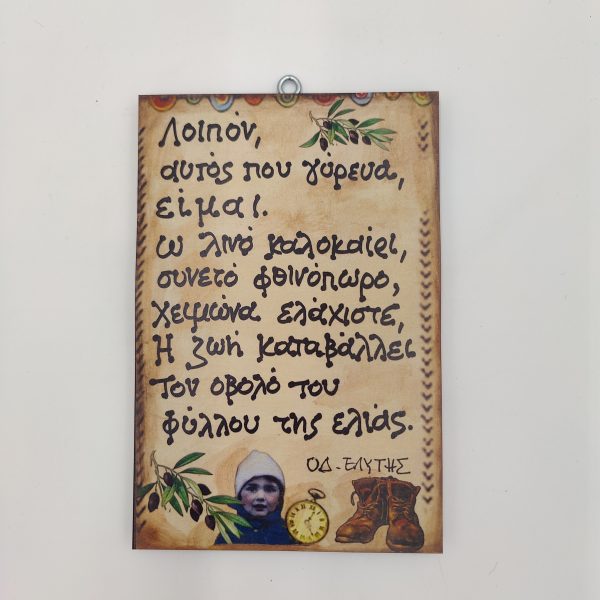 Λοιπόν,
αυτός που γύρευα,
είμαι.
ω λινό καλοκαίρι,
συνετό φθινόπωρο,
χειμώνα ελάχιστε,
Η ζωή καταβάλλει
τον οβολό του
φύλλου της ελιάς.
ΟΔ-ΕΛΥΤΗΣ